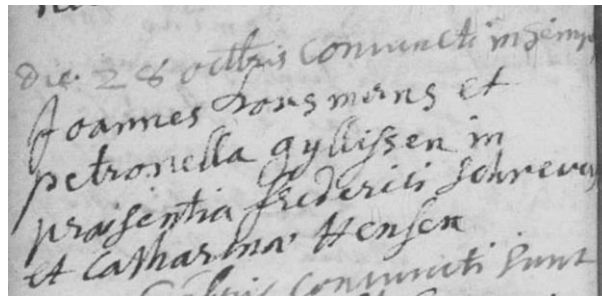 die 28 octbris coniuncti in
Joannes housmans et
petronella gylissen in
præsentia frederici schreve
et Catharina Hensen
coniuncti sunt